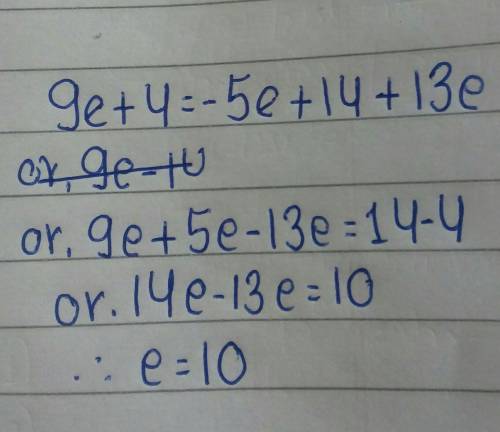 9e+4=-5e+14+13e
or, 9e-10
or, 9e+5e-13e=14-4
or. 14e-13e=10
∴ e=10